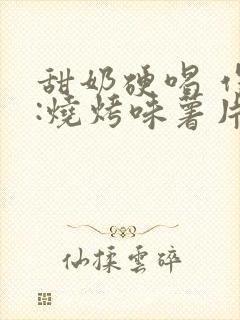 甜奶硬唱
:燒烤味薯片
仙揉雲碎